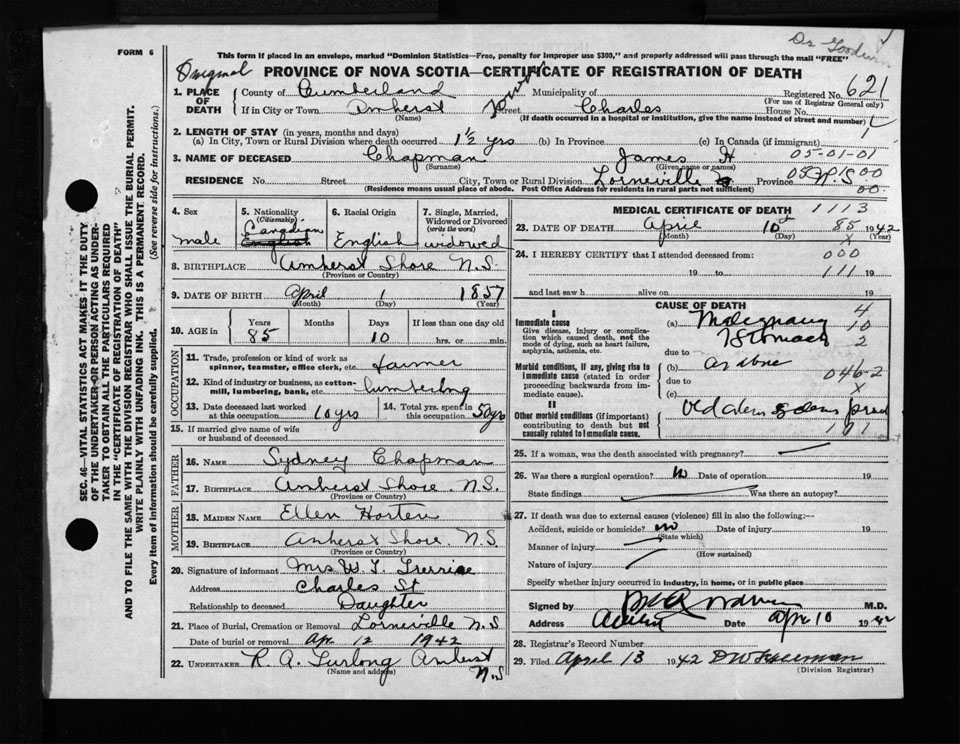 FORM 6
This form if placed in an envelope, marked "Dominion Statistics—Free, penalty for improper use $300," and properly addressed will pass through the mail "FREE"
Dr Goodwin
Original
PROVINCE OF NOVA SCOTIA—CERTIFICATE OF REGISTRATION OF DEATH
621
1. PLACE OF DEATH
County of Cumberland Municipality of Registered No.
(For use of Registrar General only)
If in City or Town Amherst Street Charles House No.
(Name) (If death occurred in a hospital or institution, give the name instead of street and number)
2. LENGTH OF STAY (in years, months and days)
(a) In City, Town or Rural Division where death occurred 1½ yrs (b) In Province (c) In Canada (if immigrant)
3. NAME OF DECEASED Chapman James H 05-01-01
(Surname) (Given name or names)
RESIDENCE No. Street City, Town or Rural Division Lorneville Province N.S.
00.
(Residence means usual place of abode. Post Office Address for residents in rural parts not sufficient)
4. Sex
male
5. Nationality
(Citizenship)
Canadian
English
6. Racial Origin
English
7. Single, Married, Widowed or Divorced
(write the word)
widowed
8. BIRTHPLACE Amherst Shore N.S.
(Province or Country)
9. DATE OF BIRTH April 1 1857
(Month) (Day) (Year)
10. AGE in
Years Months Days If less than one day old
85 10 hrs. or min.
OCCUPATION
11. Trade, profession or kind of work as spinner, teamster, office clerk, etc. farmer
12. Kind of industry or business, as cotton-mill, lumbering, bank, etc. lumbering
13. Date deceased last worked at this occupation 10 yrs
14. Total yrs. spent in this occupation 50 yrs
15. If married give name of wife or husband of deceased
FATHER
16. NAME Sydney Chapman
17. BIRTHPLACE Amherst Shore N.S.
(Province or Country)
MOTHER
18. MAIDEN NAME Ellen Horten
19. BIRTHPLACE Amherst Shore N.S
(Province or Country)
20. Signature of informant Mrs W. T.
Address Charles St
Relationship to deceased Daughter
21. Place of Burial, Cremation or Removal Lorneville N.S
Date of burial or removal Apr 12 1942
22. UNDERTAKER R. A. Furlong Amherst N.S
(Name and address)
MEDICAL CERTIFICATE OF DEATH 1113
23. DATE OF DEATH April 10th 1942
85
X
(Month) (Day) (Year)
24. I HEREBY CERTIFY that I attended deceased from:
000
19 to 111 19
and last saw h alive on 19
CAUSE OF DEATH
I
Immediate cause
Give disease, injury or complication which caused death, not the mode of dying, such as heart failure, asphyxia, asthenia, etc.
(a) Malignancy Stomach
4
10
2
due to
Morbid conditions, if any, giving rise to immediate cause (stated in order proceeding backwards from immediate cause).
(b) as above
due to
046-2
X
(c)
II
Other morbid conditions (if important) contributing to death but not causally related to immediate cause.
25. If a woman, was the death associated with pregnancy?
26. Was there a surgical operation? no Date of operation 19
State findings Was there an autopsy?
27. If death was due to external causes (violence) fill in also the following:—
Accident, suicide or homicide? no Date of injury 19
(State which)
Manner of injury
(How sustained)
Nature of injury
Specify whether injury occurred in industry, in home, or in public place
Signed by M.D.
Address Date Apr 10 1942
28. Registrar's Record Number
29. Filed April 13 1942
(Division Registrar)
SEC. 46—VITAL STATISTICS ACT MAKES IT THE DUTY
OF THE UNDERTAKER OR PERSON ACTING AS UNDER-
TAKER TO OBTAIN ALL THE PARTICULARS REQUIRED
IN THE "CERTIFICATE OF REGISTRATION OF DEATH"
AND TO FILE THE SAME WITH THE DIVISION REGISTRAR WHO SHALL ISSUE THE BURIAL PERMIT.
WRITE PLAINLY WITH UNFADING INK. THIS IS A PERMANENT RECORD.
Every item of information should be carefully supplied. (See reverse side for instructions.)